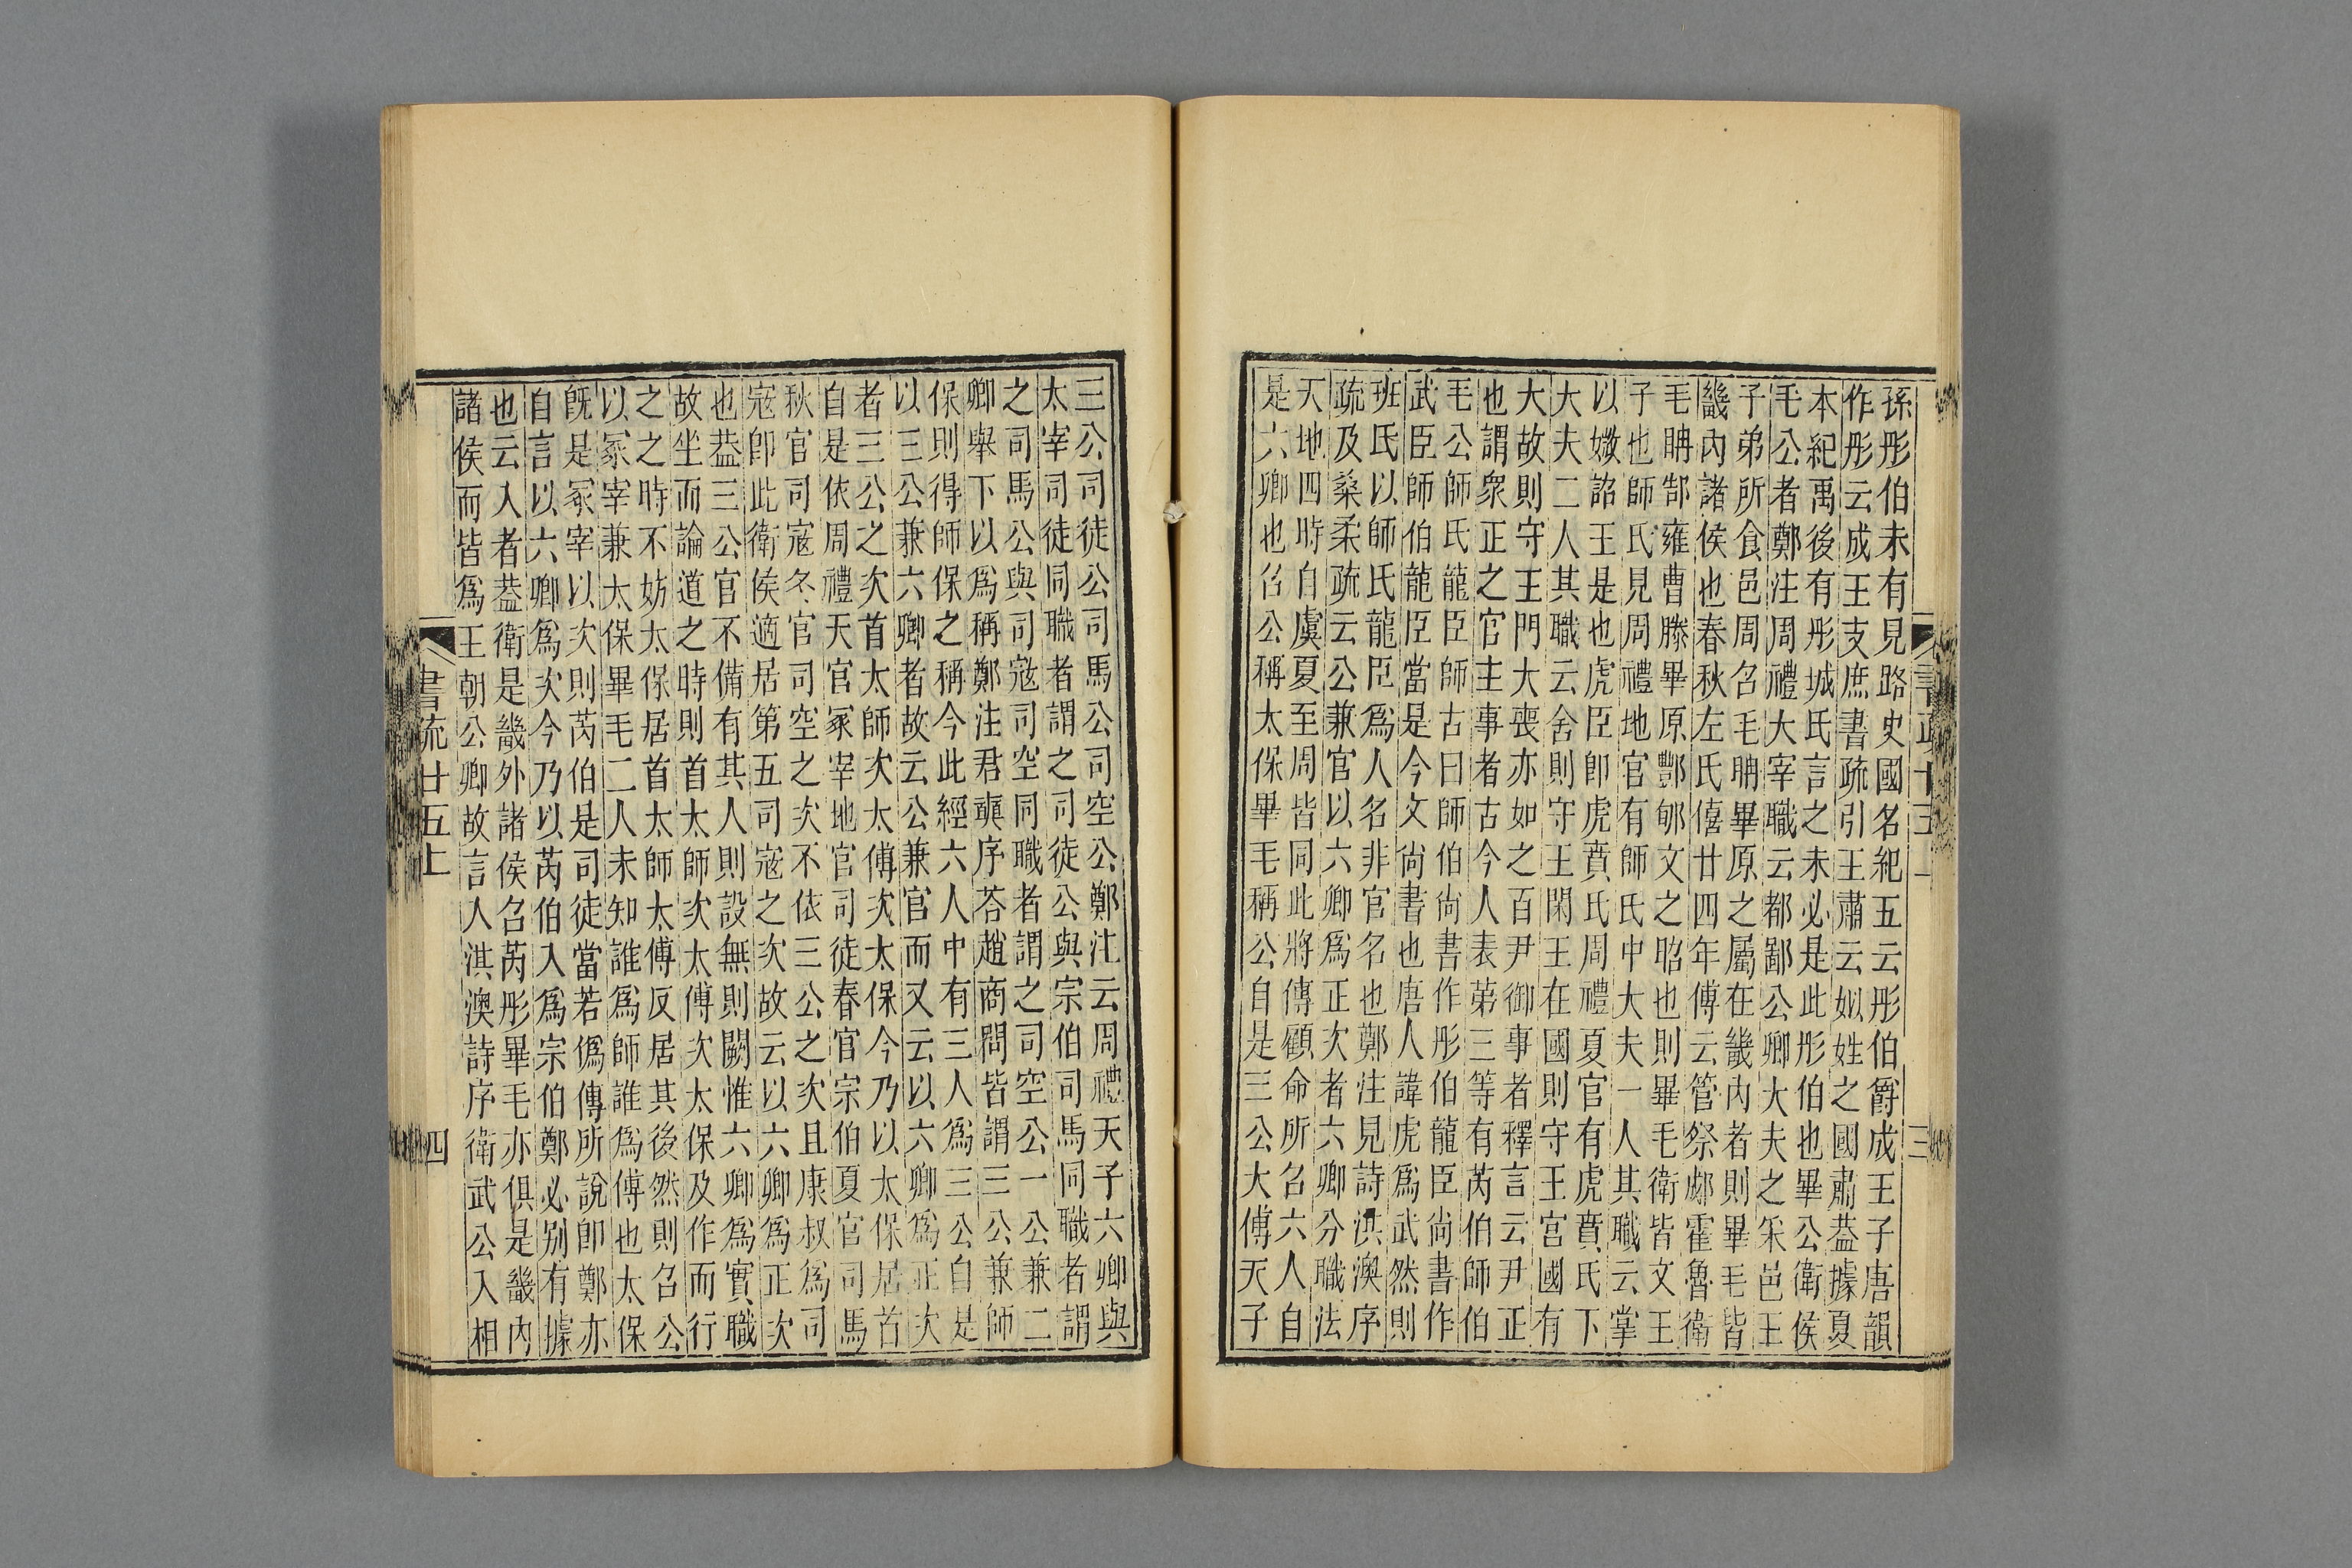 孫彤伯未有見路史國名紀五云彤伯爵成王子唐韻
作彤云成王支庶書疏引王肅云姒姓之國肅葢據夏
本紀禹後有彤城氏言之未必是此彤伯也畢公衛侯
毛公者鄭注周禮大宰職云都鄙公卿大夫之采邑王
子弟所食邑周召毛聃畢原之屬在畿內者則畢毛皆
畿內諸侯也春秋左氏僖廿四年傳云管祭郕霍魯衛
毛聃郜雍曹滕畢原酆郇文之昭也則畢毛衛皆文王
子也師氏見周禮地官有師氏中大夫一人其職云掌
以媺詔王是也虎臣即虎賁氏周禮夏官有虎賁氏下
大夫二人其職云舍則守王閑王在國則守王宮國有
大故則守王門大喪亦如之百尹御事者釋言云尹正
也謂眾正之官主事者古今人表第三等有芮伯師伯
毛公師氏龍臣師古曰師伯尚書作彤伯龍臣尚書作
武臣師伯龍臣當是今文尚書也唐人諱虎為武然則
班氏以師氏龍臣為人名非官名也鄭注見詩淇澳序
疏及桑柔疏云公兼官以六卿為正次者六卿分職法
天地四時自虞夏至周皆同此將傳顧命所召六人自
是六卿也召公稱太保畢毛稱公自是三公大傅天子
三公司徒公司馬公司空公鄭注云周禮天子六卿與
太宰司徒同職者謂之司徒公與宗伯司馬同職者謂
之司馬公與司寇司空同職者謂之司空公一公兼二
卿舉下以為稱鄭注君奭序荅趙商問皆謂三公兼師
保則得師保之稱今此經六人中有三人為三公自是
以三公兼六卿者故云公兼官而又云以六卿為正次
者三公之次首太師次太傅次太保今乃以太保居首
自是依周禮天官冢宰地官司徒春官宗伯夏官司馬
秋官司寇冬官司空之次不依三公之次且康叔為司
寇即此衛侯適居第五司寇之次故云以六卿為正次
也葢三公官不備有其人則設無則闕惟六卿為實職
故坐而論道之時則首太師次太傅次太保及作而行
之之時不妨太保居首太師太傅反居其後然則召公
以冢宰兼太保畢毛二人未知誰為師誰為傅也太保
既是冢宰以次則芮伯是司徒當若偽傳所說即鄭亦
自言以六卿為次今乃以芮伯入為宗伯鄭必別有據
也云入者葢衛是畿外諸侯召芮彤畢毛亦俱是畿內
諸侯而皆為王朝公卿故言人淇澳詩序衛武公入相
書疏廿五上
四
三